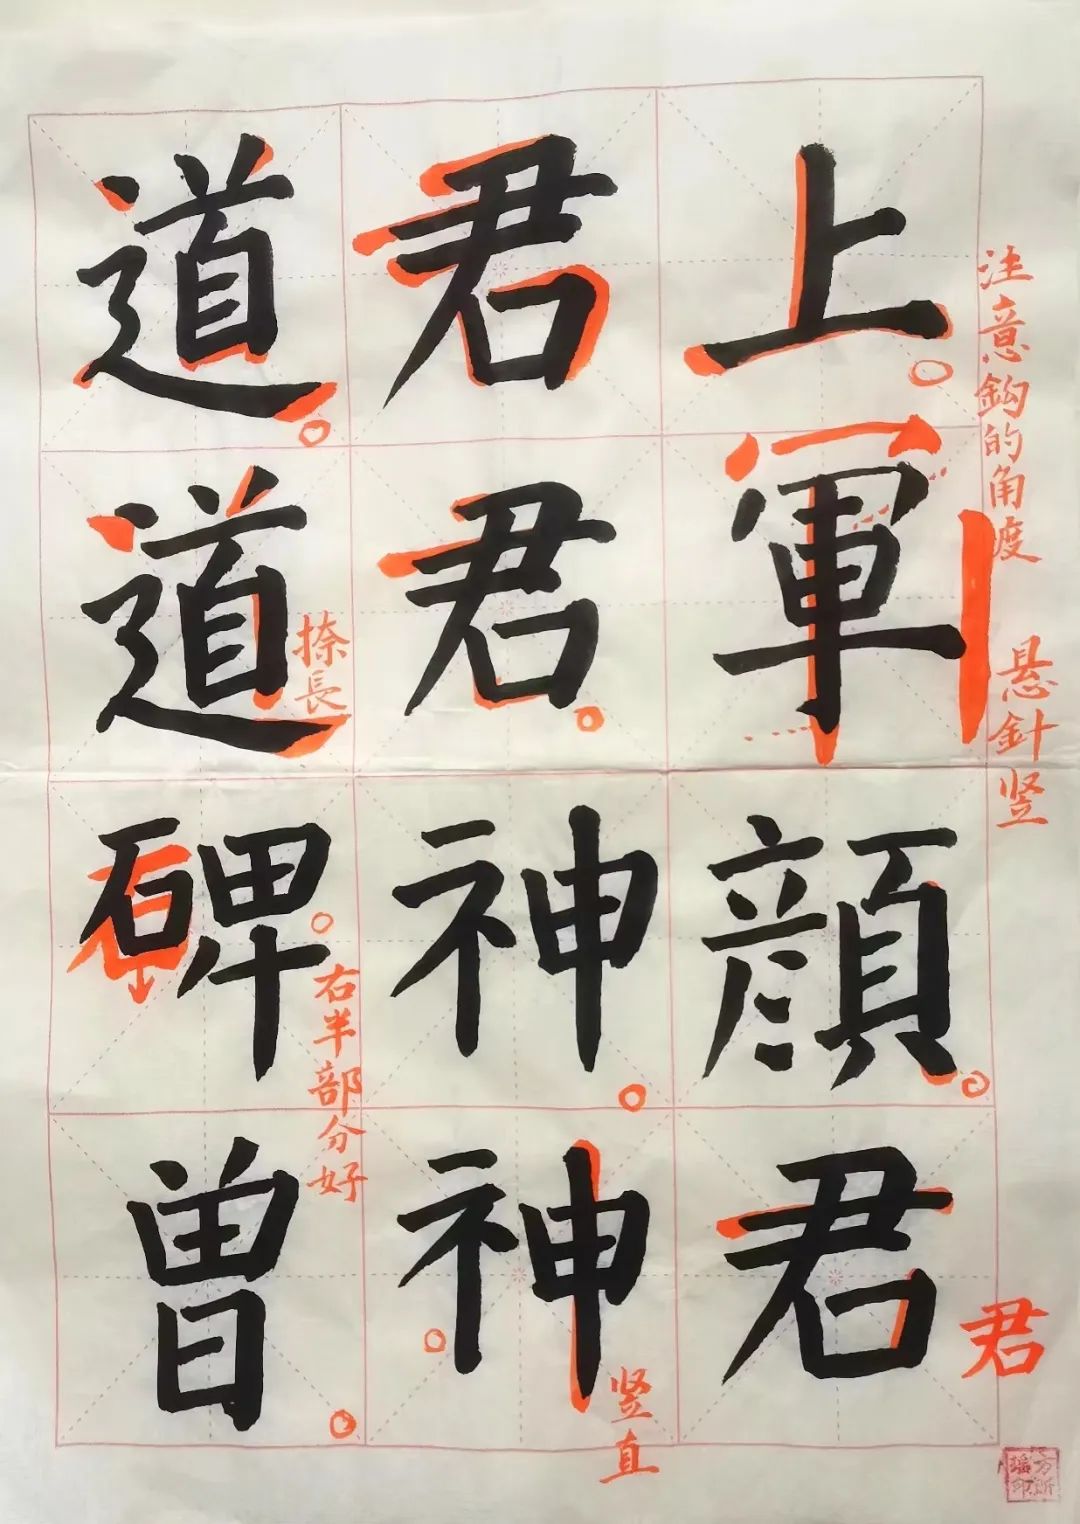 上軍顏君
君君神神
道道碑曽
注意鈎的角度
悬針竖
君
竖直
捺長
右半部分好